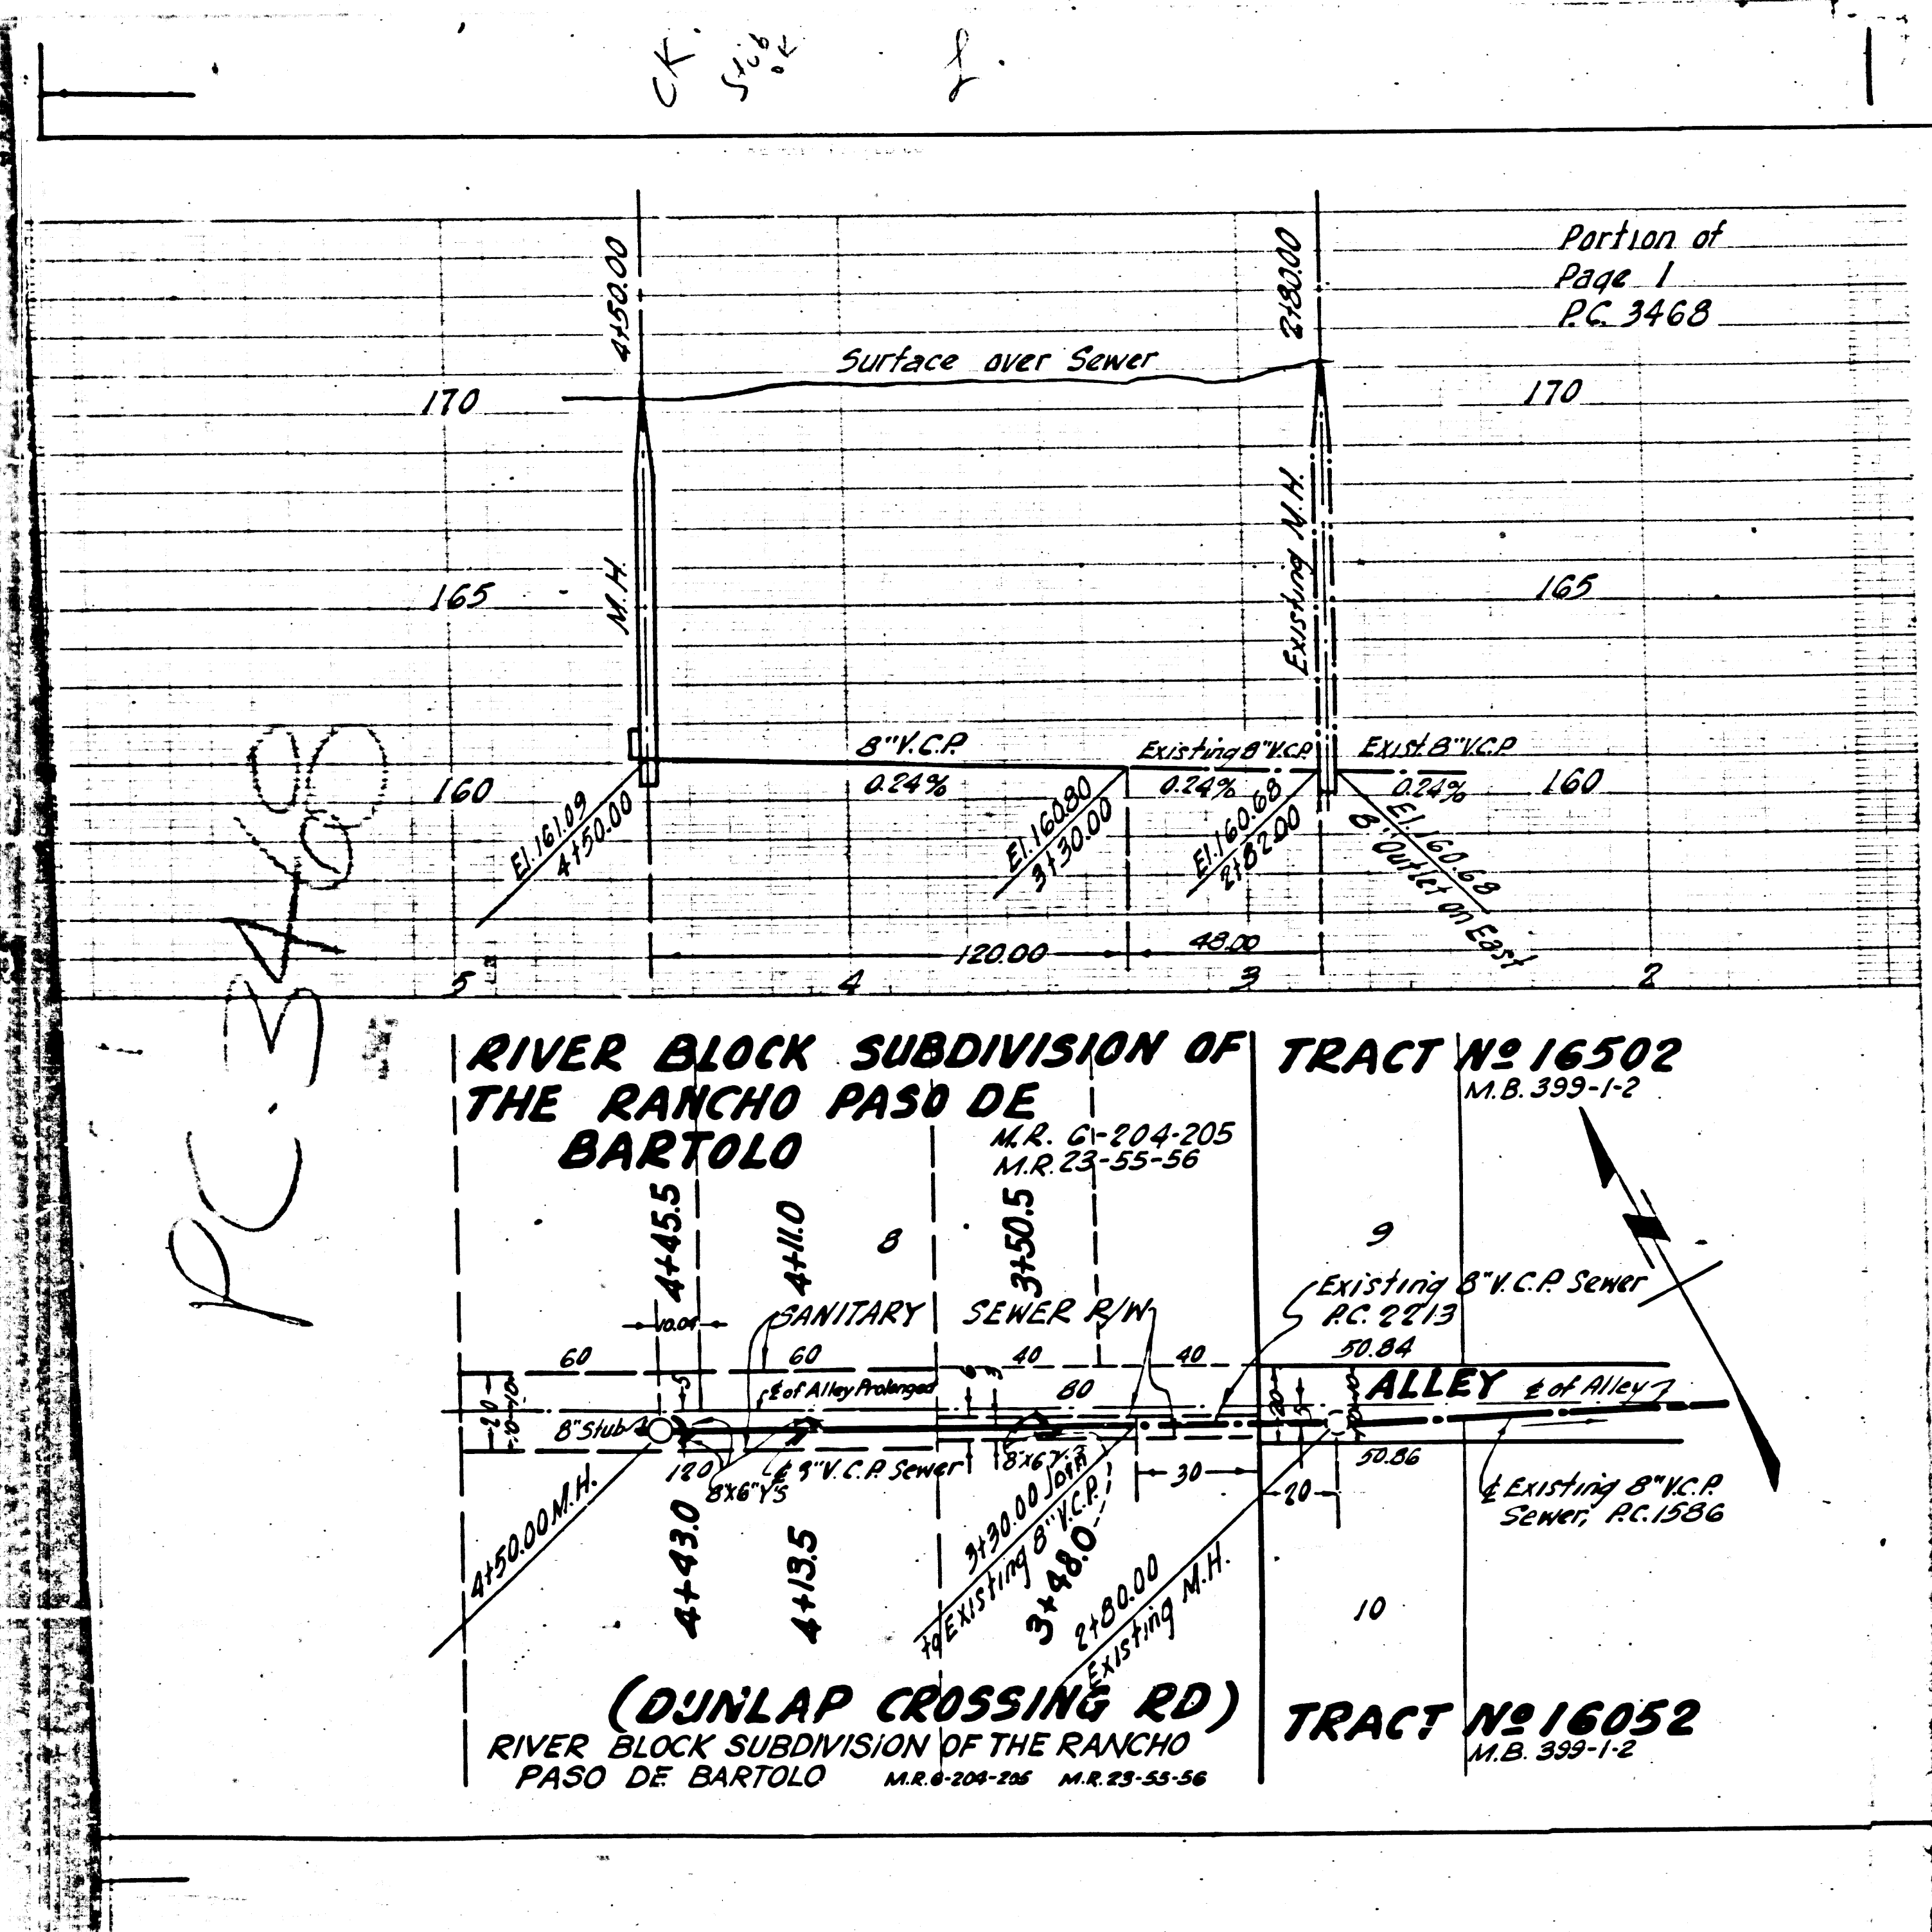 CK.
Stub
OK
P.C. 3468
Portion of
Page 1
P.C. 3468
4+50.00
2+80.00
Surface over Sewer
170
170
M.H.
Existing M.H.
165
165
8" V.C.P.
Existing 8" V.C.P.
Exist. 8" V.C.P.
160
0.24%
0.24%
0.24%
160
El. 161.09
4+50.00
El. 160.80
3+30.00
El. 160.68
2+82.00
El. 160.68
8" Outlet on East
120.00
48.00
5
4
3
2
RIVER BLOCK SUBDIVISION OF
THE RANCHO PASO DE
BARTOLO
M.R. 6-204-205
M.R. 23-55-56
TRACT Nº 16502
M.B. 399-1-2
4+45.5
4+11.0
8
3+50.5
9
10.04
SANITARY SEWER R/W
Existing 8" V.C.P. Sewer
P.C. 2213
60
60
40
40
50.84
20
10
10
5
℄ of Alley Prolonged
6
3
80
20
5
ALLEY
℄ of Alley
8" Stub
120
8"x6" Y'S
℄ 8" V.C.P. Sewer
8"x6" Y'S
30
20
50.86
℄ Existing 8" V.C.P.
Sewer, P.C. 1586
4+50.00 M.H.
4+43.0
4+13.5
3+30.00 Join
to Existing 8" V.C.P.
3+48.0
2+80.00
Existing M.H.
10
(DUNLAP CROSSING RD)
RIVER BLOCK SUBDIVISION OF THE RANCHO
PASO DE BARTOLO M.R. 6-204-205 M.R. 23-55-56
TRACT Nº 16052
M.B. 399-1-2